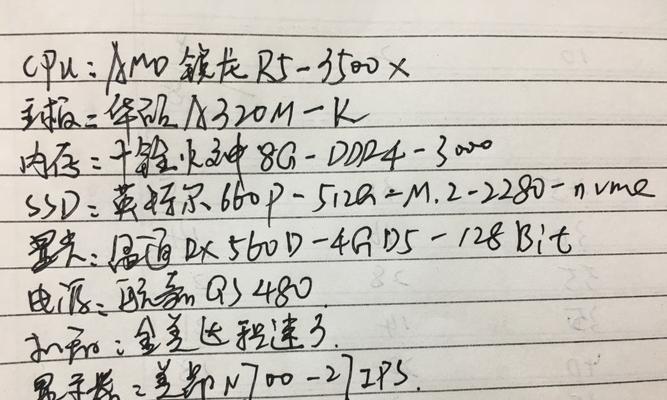 CPU：AMD 锐龙 R5-3500X
主板：华硕 A320M-K
内存：十铨火神 8G-DDR4-3000
SSD：英特尔 660P-512G-M.2-2280-nvme
显卡：盈通 RX 560D-4GD5-128Bit
电源：航嘉 GS480
机箱：金美达积速3.
显示器：N700-27IPS.